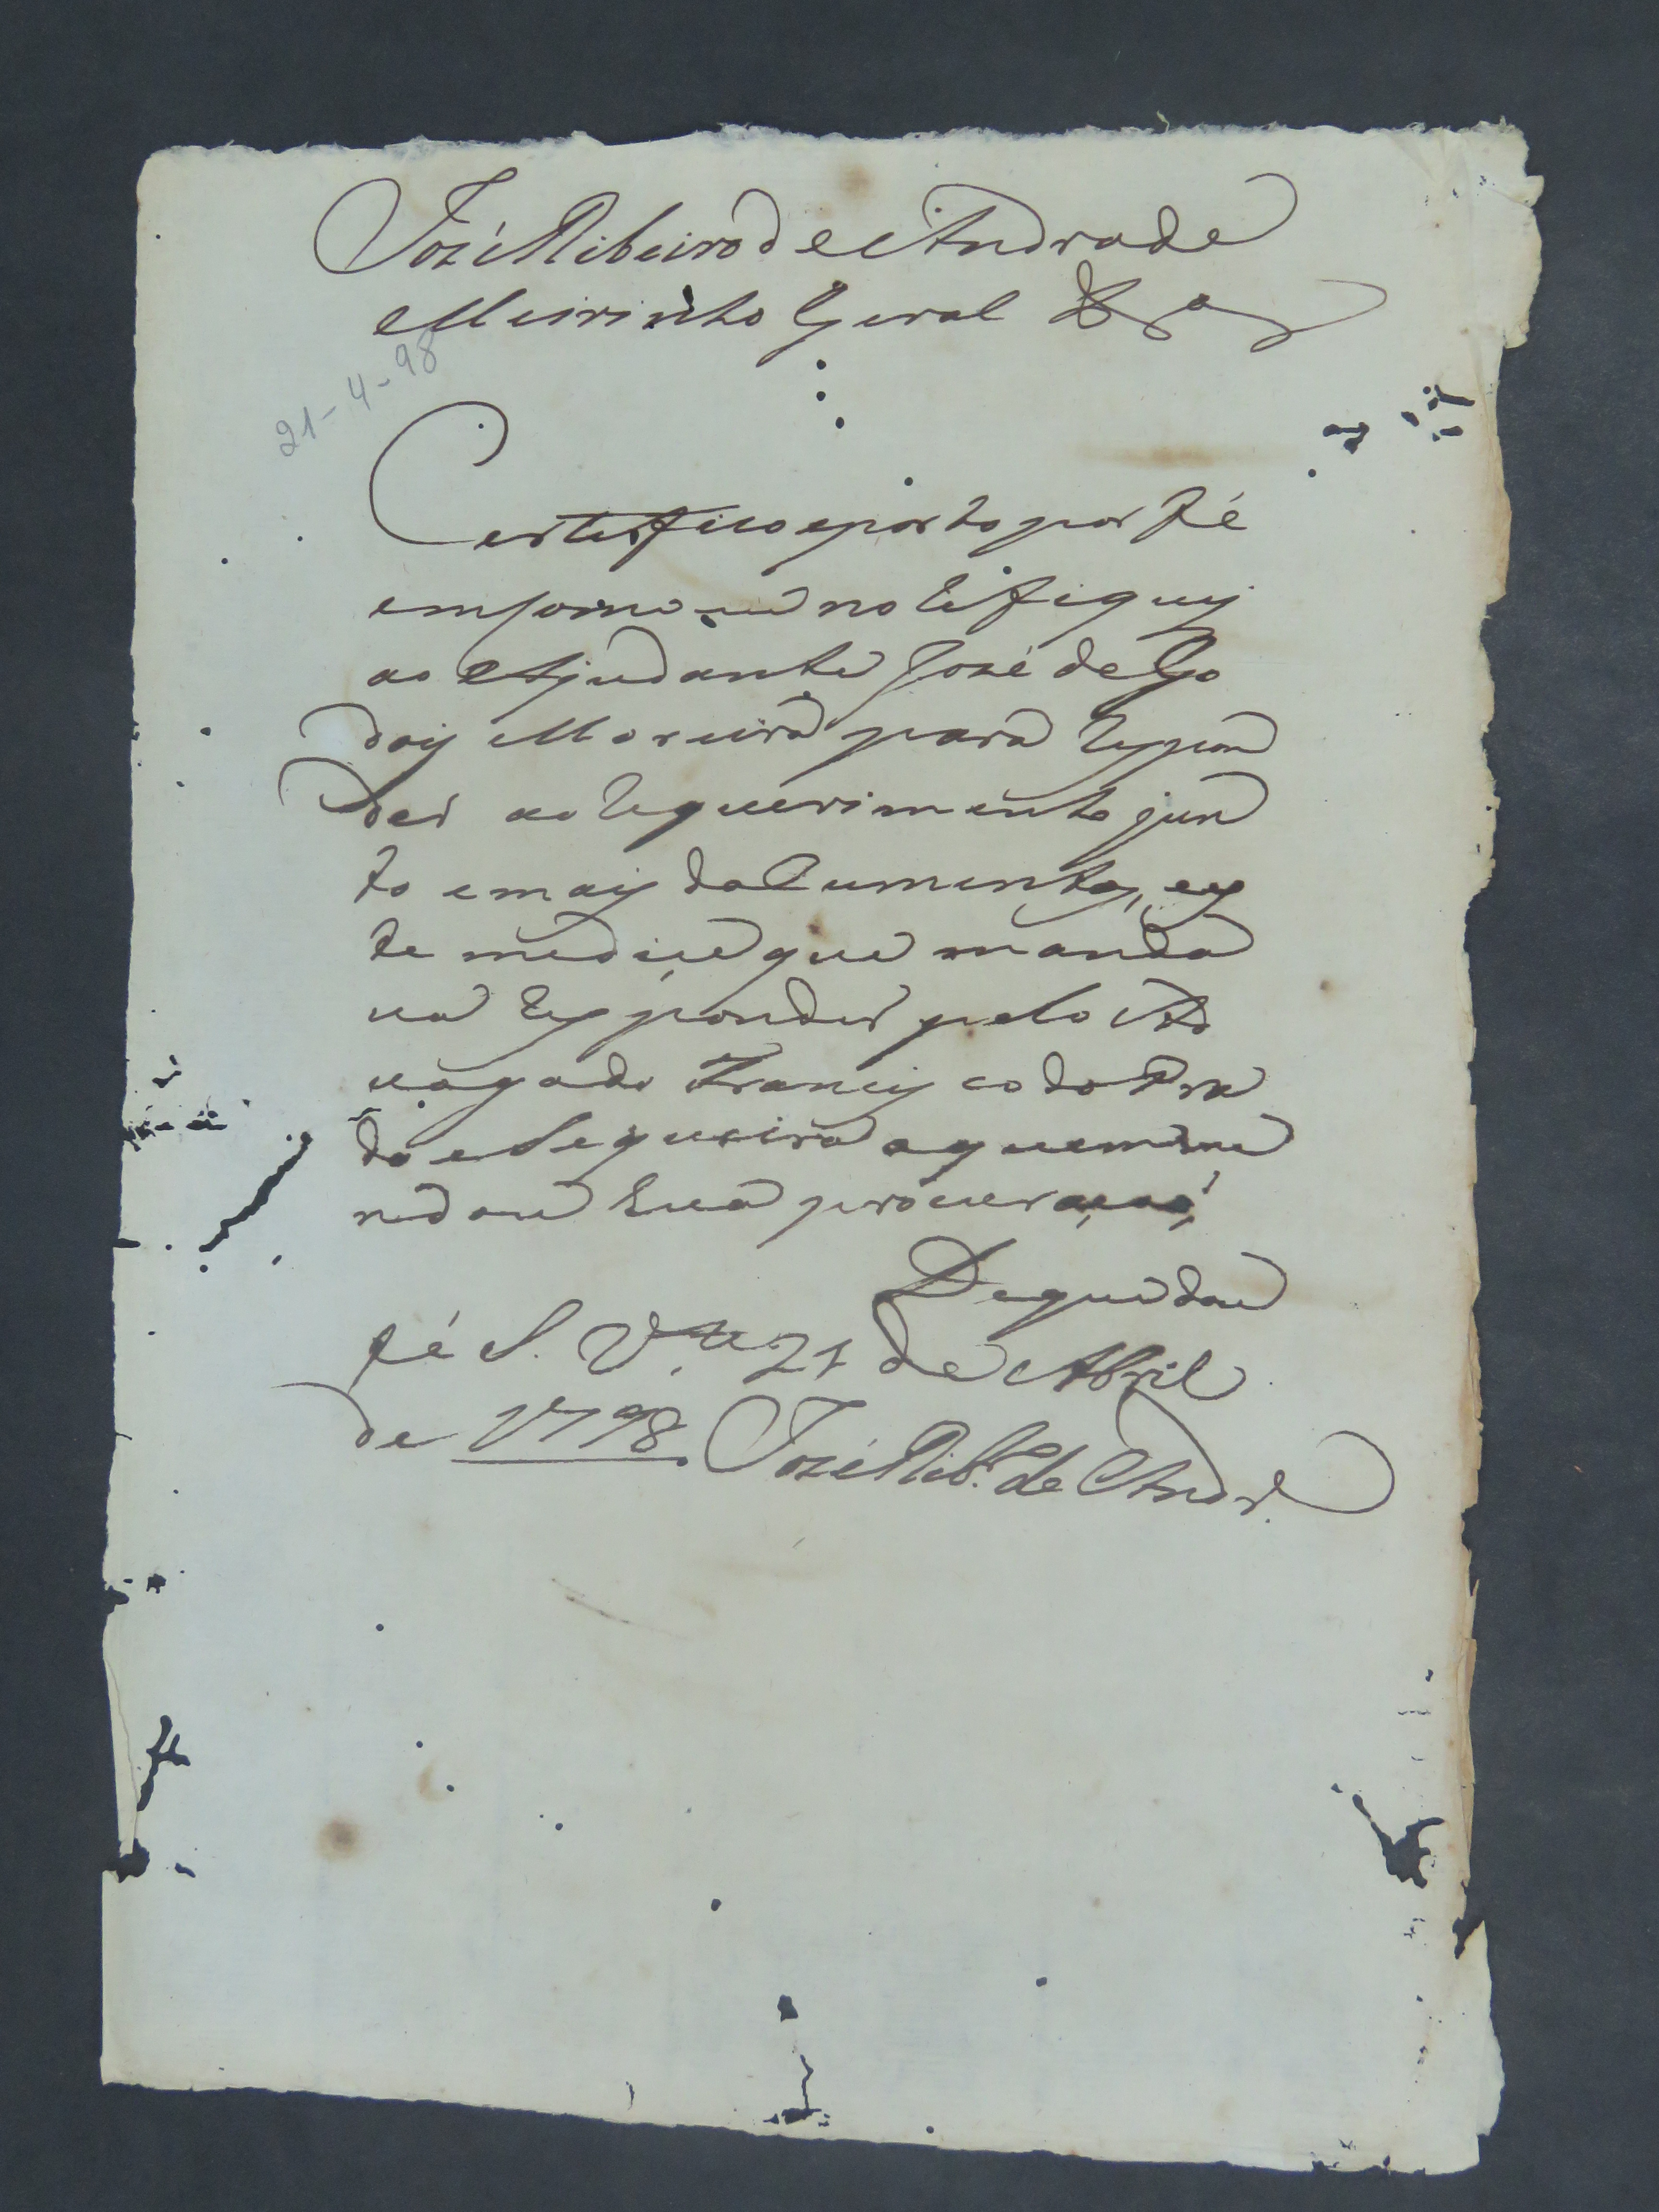 José Ribeiro de Andrade
Meirinho Geral
21-4-98
Certefico e porto por fé
em como eu notefiquej
ao Ajudante José de Go
doij Moreira para respon
der ao requerimento jun
to e mais documentos, es
te me dice que manda
va responder pelo Ad
vogado Francisco do Pra
do e Sequeira a quem
sua procuração
De que dou
fé S. 21 de Abril
de 1798. José Rib.º de Andr.e